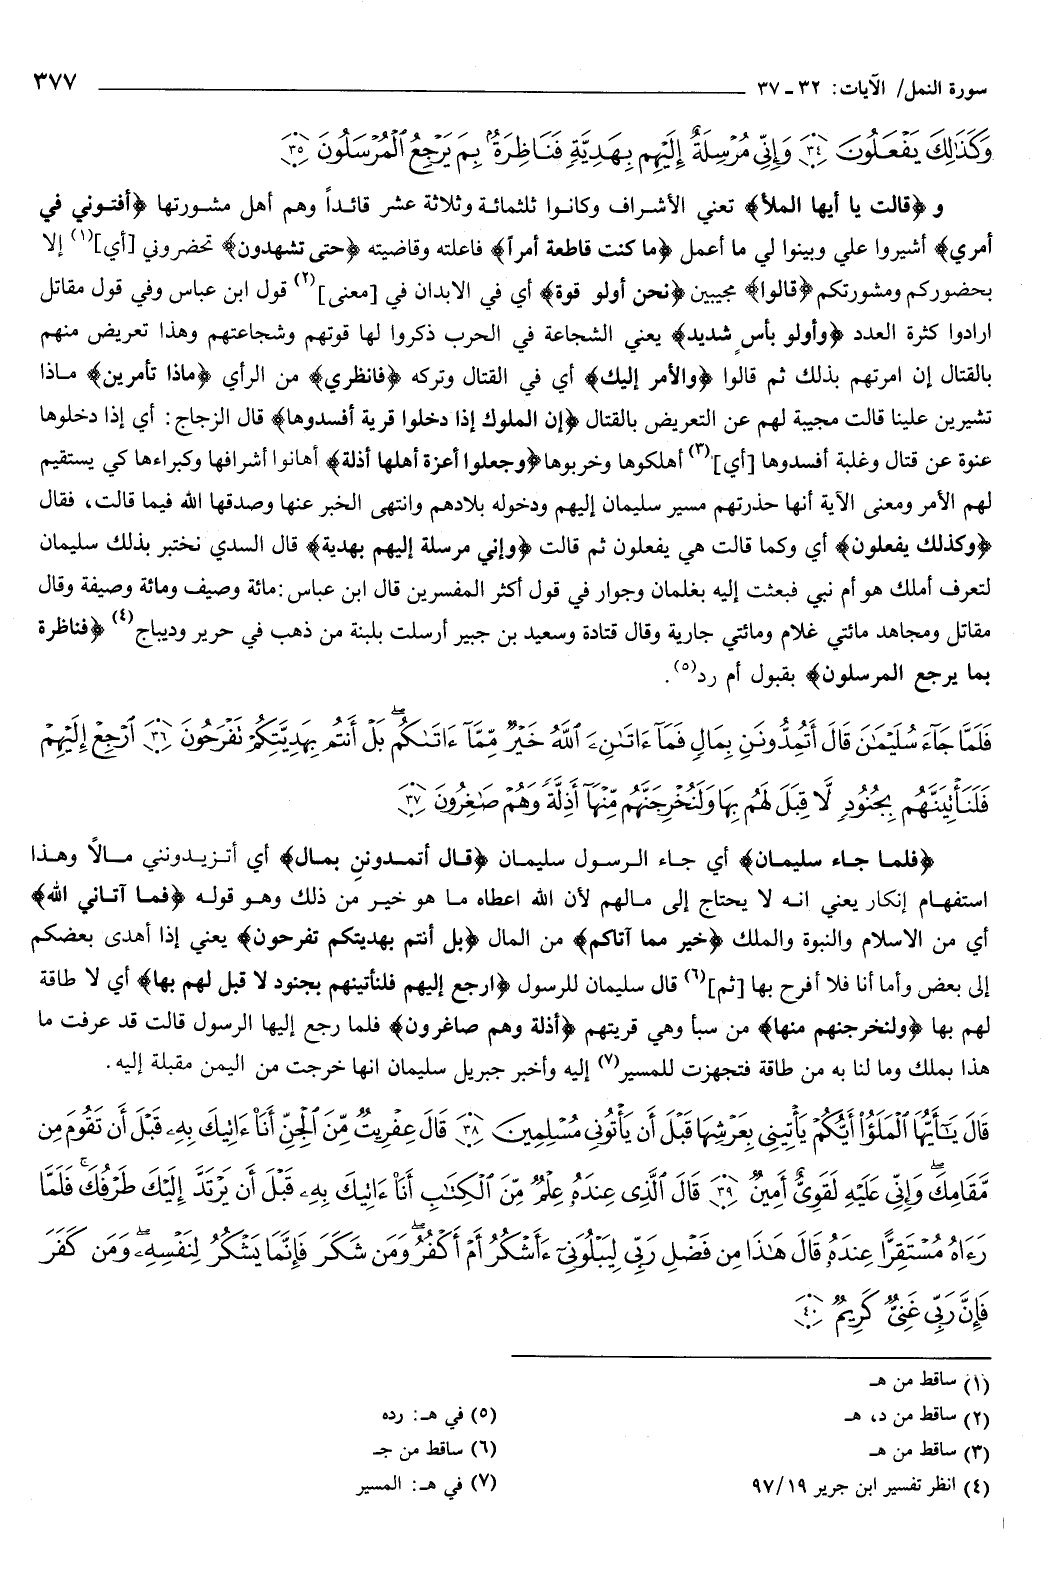 سورة النمل/ الآيات: ٣٢ ـ ٣٧ ٣٧٧
وَكَذَٰلِكَ يَفْعَلُونَ ﴿٣٤﴾ وَإِنِّي مُرْسِلَةٌ إِلَيْهِم بِهَدِيَّةٍ فَنَاظِرَةٌۢ بِمَ يَرْجِعُ ٱلْمُرْسَلُونَ ﴿٣٥﴾
و ﴿قالت يا أيها الملأ﴾ تعني الأشراف وكانوا ثلثمائة وثلاثة عشر قائداً وهم أهل مشورتها ﴿أفتوني في
أمري﴾ أشيروا علي وبينوا لي ما أعمل ﴿ما كنت قاطعة أمراً﴾ فاعلته وقاضيته ﴿حتى تشهدون﴾ تحضروني [أي](١) إلا
بحضوركم ومشورتكم ﴿قالوا﴾ مجيبين ﴿نحن أولو قوة﴾ أي في الابدان في [معنى](٢) قول ابن عباس وفي قول مقاتل
ارادوا كثرة العدد ﴿وأولو بأس شديد﴾ يعني الشجاعة في الحرب ذكروا لها قوتهم وشجاعتهم وهذا تعريض منهم
بالقتال إن امرتهم بذلك ثم قالوا ﴿والأمر إليك﴾ أي في القتال وتركه ﴿فانظري﴾ من الرأي ﴿ماذا تأمرين﴾ ماذا
تشيرين علينا قالت مجيبة لهم عن التعريض بالقتال ﴿إن الملوك إذا دخلوا قرية أفسدوها﴾ قال الزجاج: أي إذا دخلوها
عنوة عن قتال وغلبة أفسدوها [أي](٣) أهلكوها وخربوها ﴿وجعلوا أعزة أهلها أذلة﴾ أهانوا أشرافها وكبراءها كي يستقيم
لهم الأمر ومعنى الآية أنها حذرتهم مسير سليمان إليهم ودخوله بلادهم وانتهى الخبر عنها وصدقها الله فيما قالت، فقال
﴿وكذلك يفعلون﴾ أي وكما قالت هي يفعلون ثم قالت ﴿وإني مرسلة إليهم بهدية﴾ قال السدي نختبر بذلك سليمان
لتعرف أملك هو أم نبي فبعثت إليه بغلمان وجوار في قول أكثر المفسرين قال ابن عباس: مائة وصيف ومائة وصيفة وقال
مقاتل ومجاهد مائتي غلام ومائتي جارية وقال قتادة وسعيد بن جبير أرسلت بلبنة من ذهب في حرير وديباج(٤) ﴿فناظرة
بما يرجع المرسلون﴾ بقبول أم رد(٥).
فَلَمَّا جَآءَ سُلَيْمَٰنَ قَالَ أَتُمِدُّونَنِ بِمَالٍ فَمَآ ءَاتَىٰنِۦَ ٱللَّهُ خَيْرٌ مِّمَّآ ءَاتَىٰكُمۖ بَلْ أَنتُم بِهَدِيَّتِكُمْ تَفْرَحُونَ ﴿٣٦﴾ ٱرْجِعْ إِلَيْهِمْ
فَلَنَأْتِيَنَّهُم بِجُنُودٍ لَّا قِبَلَ لَهُم بِهَا وَلَنُخْرِجَنَّهُم مِّنْهَآ أَذِلَّةً وَهُمْ صَٰغِرُونَ ﴿٣٧﴾
﴿فلما جاء سليمان﴾ أي جاء الرسول سليمان ﴿قال أتمدوننِ بمال﴾ أي أتزيدونني مالاً وهذا
استفهام إنكار يعني انه لا يحتاج إلى مالهم لأن الله اعطاه ما هو خير من ذلك وهو قوله ﴿فما آتاني الله﴾
أي من الاسلام والنبوة والملك ﴿خير مما آتاكم﴾ من المال ﴿بل أنتم بهديتكم تفرحون﴾ يعني إذا أهدى بعضكم
إلى بعض وأما أنا فلا أفرح بها [ثم](٦) قال سليمان للرسول ﴿ارجع إليهم فلنأتينهم بجنود لا قبل لهم بها﴾ أي لا طاقة
لهم بها ﴿ولنخرجنهم منها﴾ من سبأ وهي قريتهم ﴿أذلة وهم صاغرون﴾ فلما رجع إليها الرسول قالت قد عرفت ما
هذا بملك وما لنا به من طاقة فتجهزت للمسير(٧) إليه وأخبر جبريل سليمان انها خرجت من اليمن مقبلة إليه.
قَالَ يَٰٓأَيُّهَا ٱلْمَلَؤُا۟ أَيُّكُمْ يَأْتِينِي بِعَرْشِهَا قَبْلَ أَن يَأْتُونِي مُسْلِمِينَ ﴿٣٨﴾ قَالَ عِفْرِيتٌ مِّنَ ٱلْجِنِّ أَنَا۠ ءَاتِيكَ بِهِۦ قَبْلَ أَن تَقُومَ مِن
مَّقَامِكَۖ وَإِنِّي عَلَيْهِ لَقَوِىٌّ أَمِينٌ ﴿٣٩﴾ قَالَ ٱلَّذِى عِندَهُۥ عِلْمٌ مِّنَ ٱلْكِتَٰبِ أَنَا۠ ءَاتِيكَ بِهِۦ قَبْلَ أَن يَرْتَدَّ إِلَيْكَ طَرْفُكَۚ فَلَمَّا
رَءَاهُ مُسْتَقِرًّا عِندَهُۥ قَالَ هَٰذَا مِن فَضْلِ رَبِّي لِيَبْلُوَنِيٓ ءَأَشْكُرُ أَمْ أَكْفُرُۖ وَمَن شَكَرَ فَإِنَّمَا يَشْكُرُ لِنَفْسِهِۦۖ وَمَن كَفَرَ
فَإِنَّ رَبِّي غَنِىٌّ كَرِيمٌ ﴿٤٠﴾
(١) ساقط من هـ
(٢) ساقط من د، هـ
(٣) ساقط من هـ
(٤) انظر تفسير ابن جرير ٩٧/١٩
(٥) في هـ: رده
(٦) ساقط من جـ
(٧) في هـ: المسير